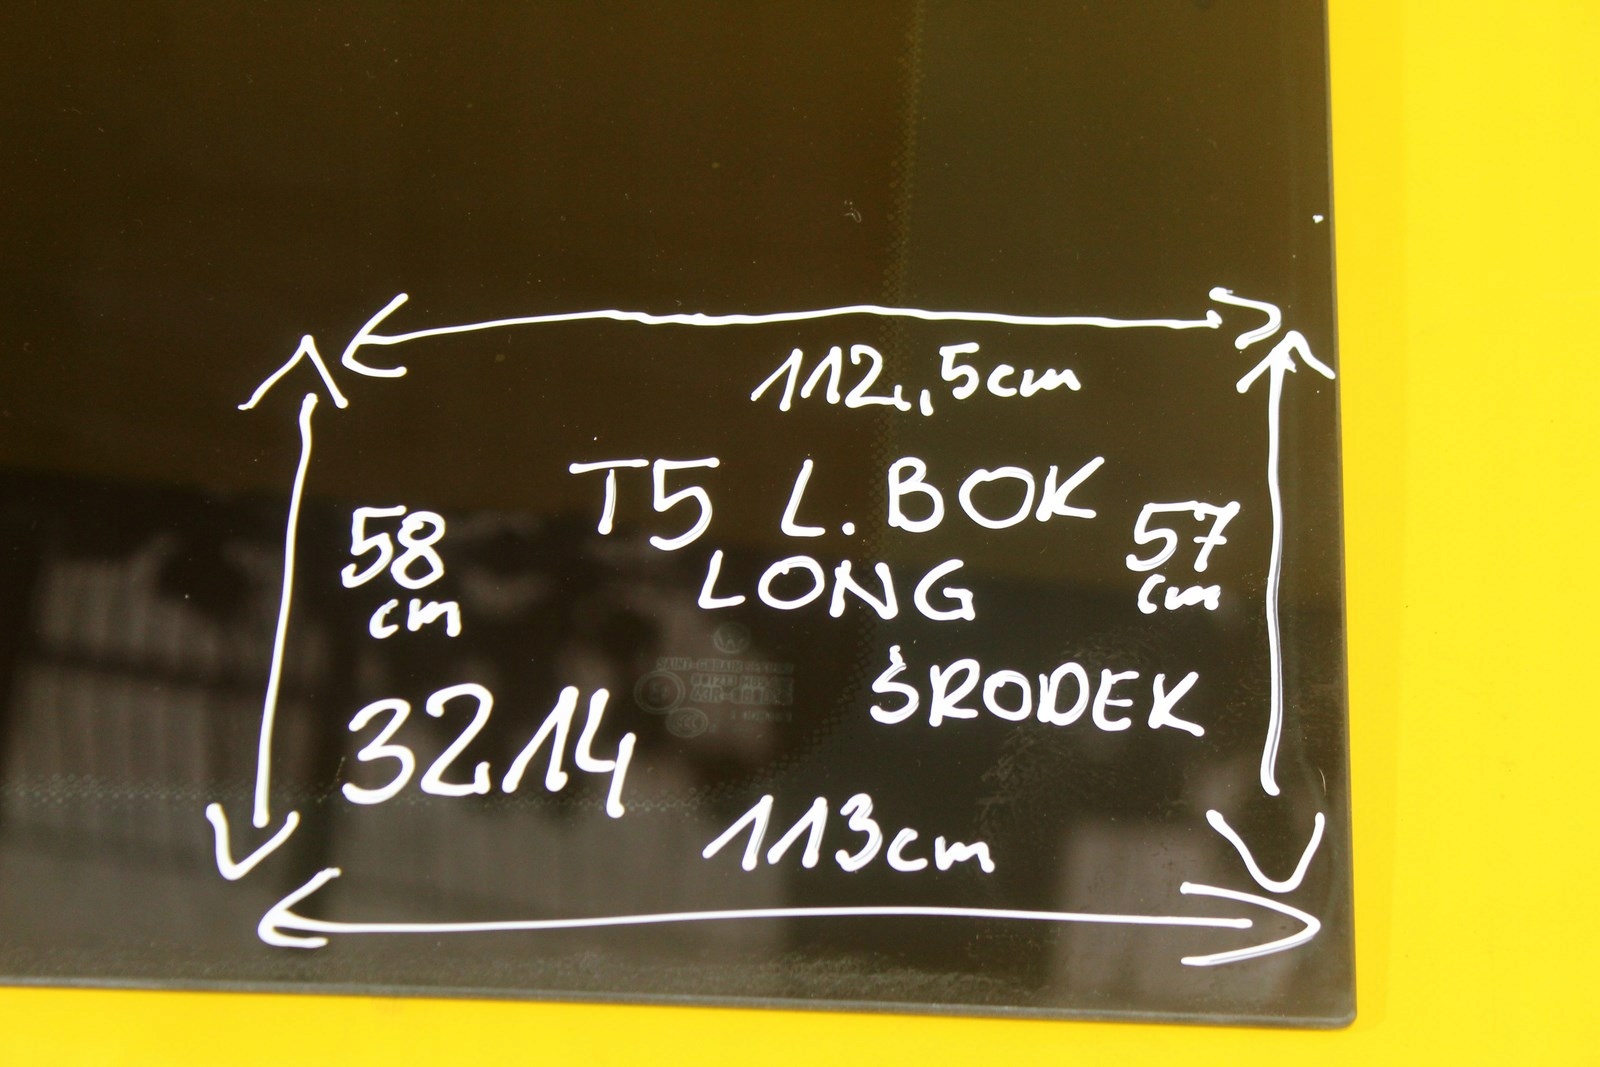 112,5cm
T5 L. BOK
LONG
58
cm
57
cm
ŚRODEK
3214
113cm
SAINT-GOBAIN